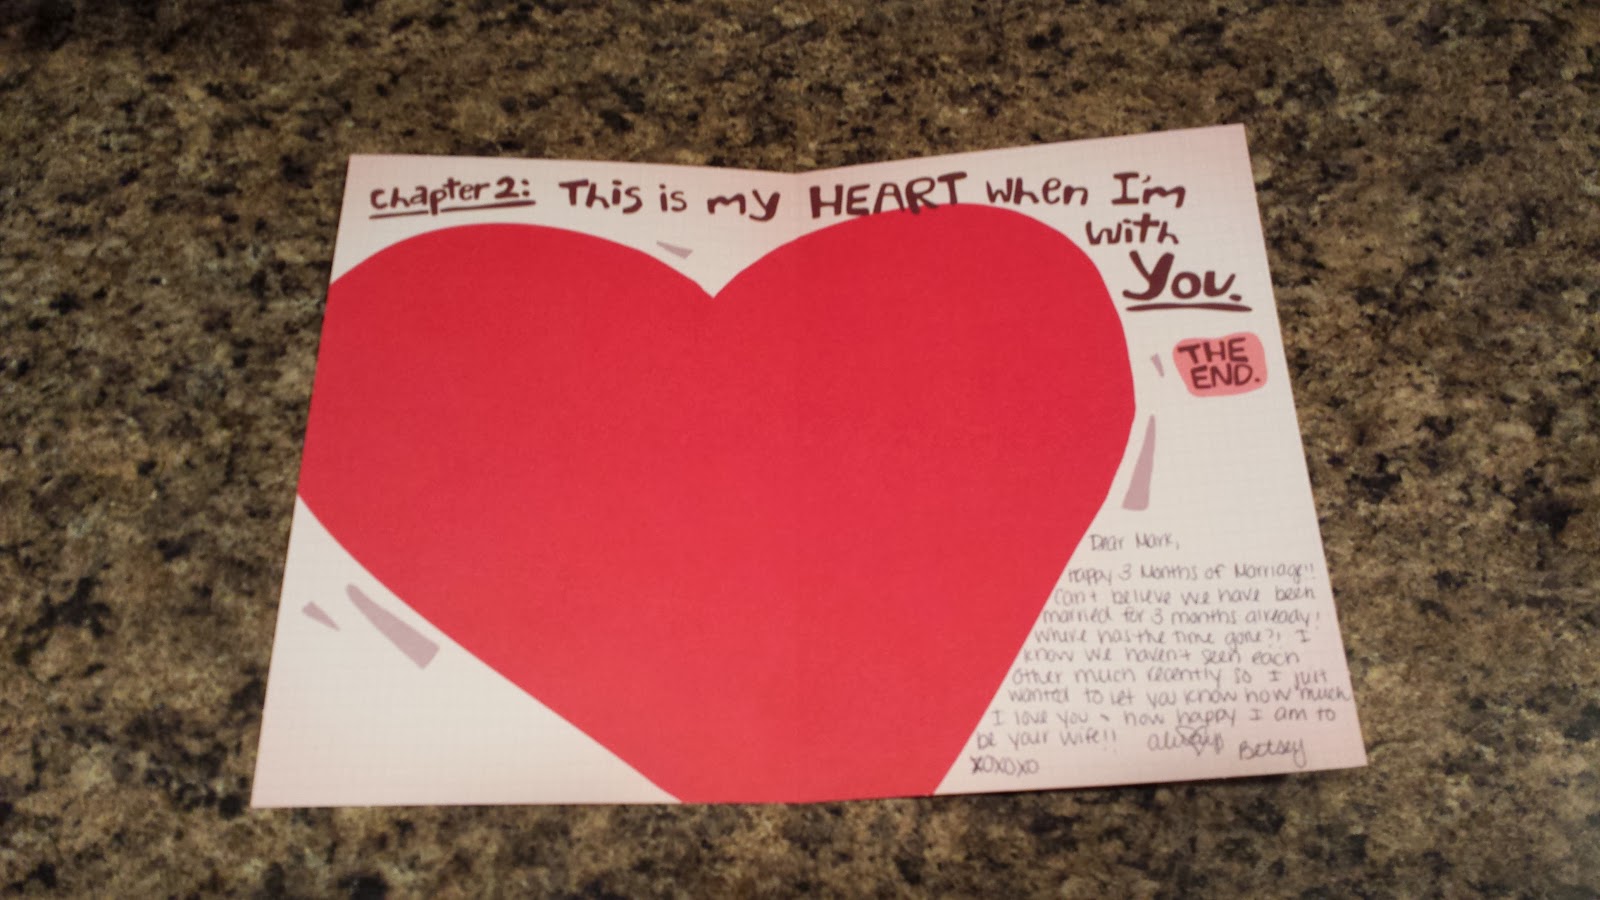 Chapter 2: This is my HEART when I'm
with
You.
THE
END.
Dear Mark,
Happy 3 Months of Marriage!!
Can't believe we have been
married for 3 months already!
Where has the time gone?! I
know we haven't seen each
other much recently so I just
wanted to let you know how much
I love you + how happy I am to
be your wife!!
Betsey
XOXOXO